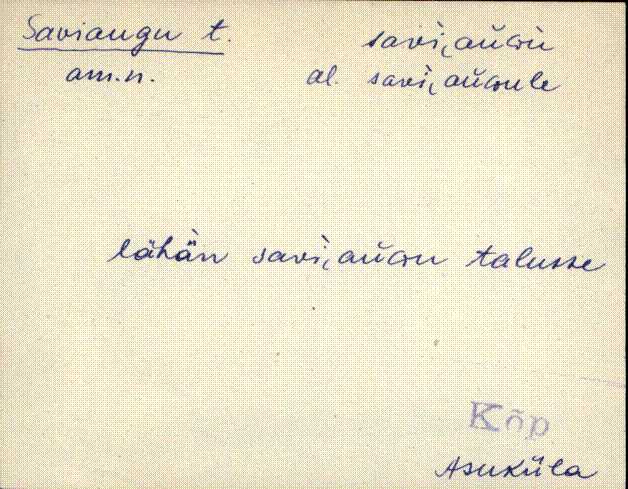 Saviaugu t. savi,aŭɢu
am.n. al. savi,aŭɢule
lähän savi,aŭɢu talusse
Kõp
Asuküla